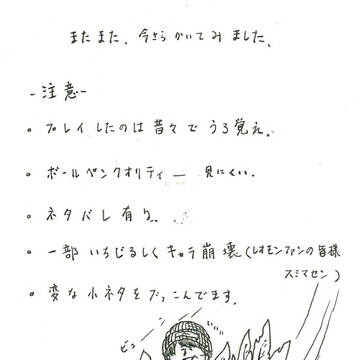 またまた、今さらかいてみました。
-注意-
• プレイしたのは昔々でうろ覚え。
• ボールペンクオリティー 見にくい.
• ネタバレ有り
• 一部いちじるしくキャラ崩壊(レオモンファンの皆様
スミマセン)
• 変な小ネタをぶっこんでます。
ビュー